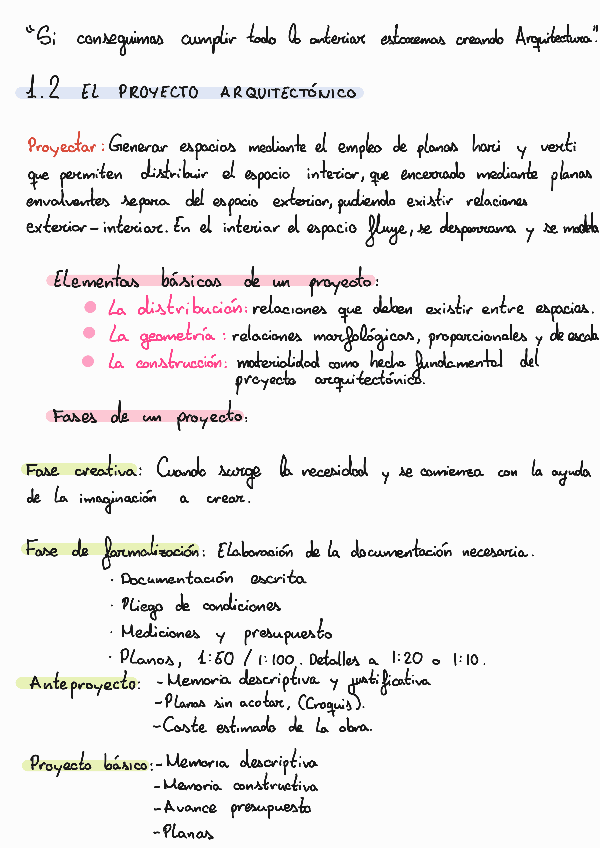 "Si conseguimos cumplir todo lo anterior estaremos creando Arquitectura".
1.2 EL PROYECTO ARQUITECTÓNICO
Proyectar: Generar espacios mediante el empleo de planos hori y verti
que permiten distribuir el espacio interior, que encerrado mediante planos
envolventes separa del espacio exterior, pudiendo existir relaciones
exterior-interior. En el interior el espacio fluye, se desparrama y se modela
Elementos básicos de un proyecto:
La distribución: relaciones que deben existir entre espacios.
La geometría: relaciones morfológicas, proporcionales y de escala
La construcción: materialidad como hecho fundamental del
proyecto arquitectónico.
Fases de un proyecto:
Fase creativa: Cuando surge la necesidad y se comienza con la ayuda
de la imaginación a crear.
Fase de formalización: Elaboración de la documentación necesaria.
· Documentación escrita
· Pliego de condiciones
· Mediciones y presupuesto
· Planos, 1:50 / 1:100. Detalles a 1:20 o 1:10.
Anteproyecto: - Memoria descriptiva y justificativa
- Planos sin acotar, (Croquis).
- Coste estimado de la obra.
Proyecto básico: - Memoria descriptiva
- Memoria constructiva
- Avance presupuesto
- Planos